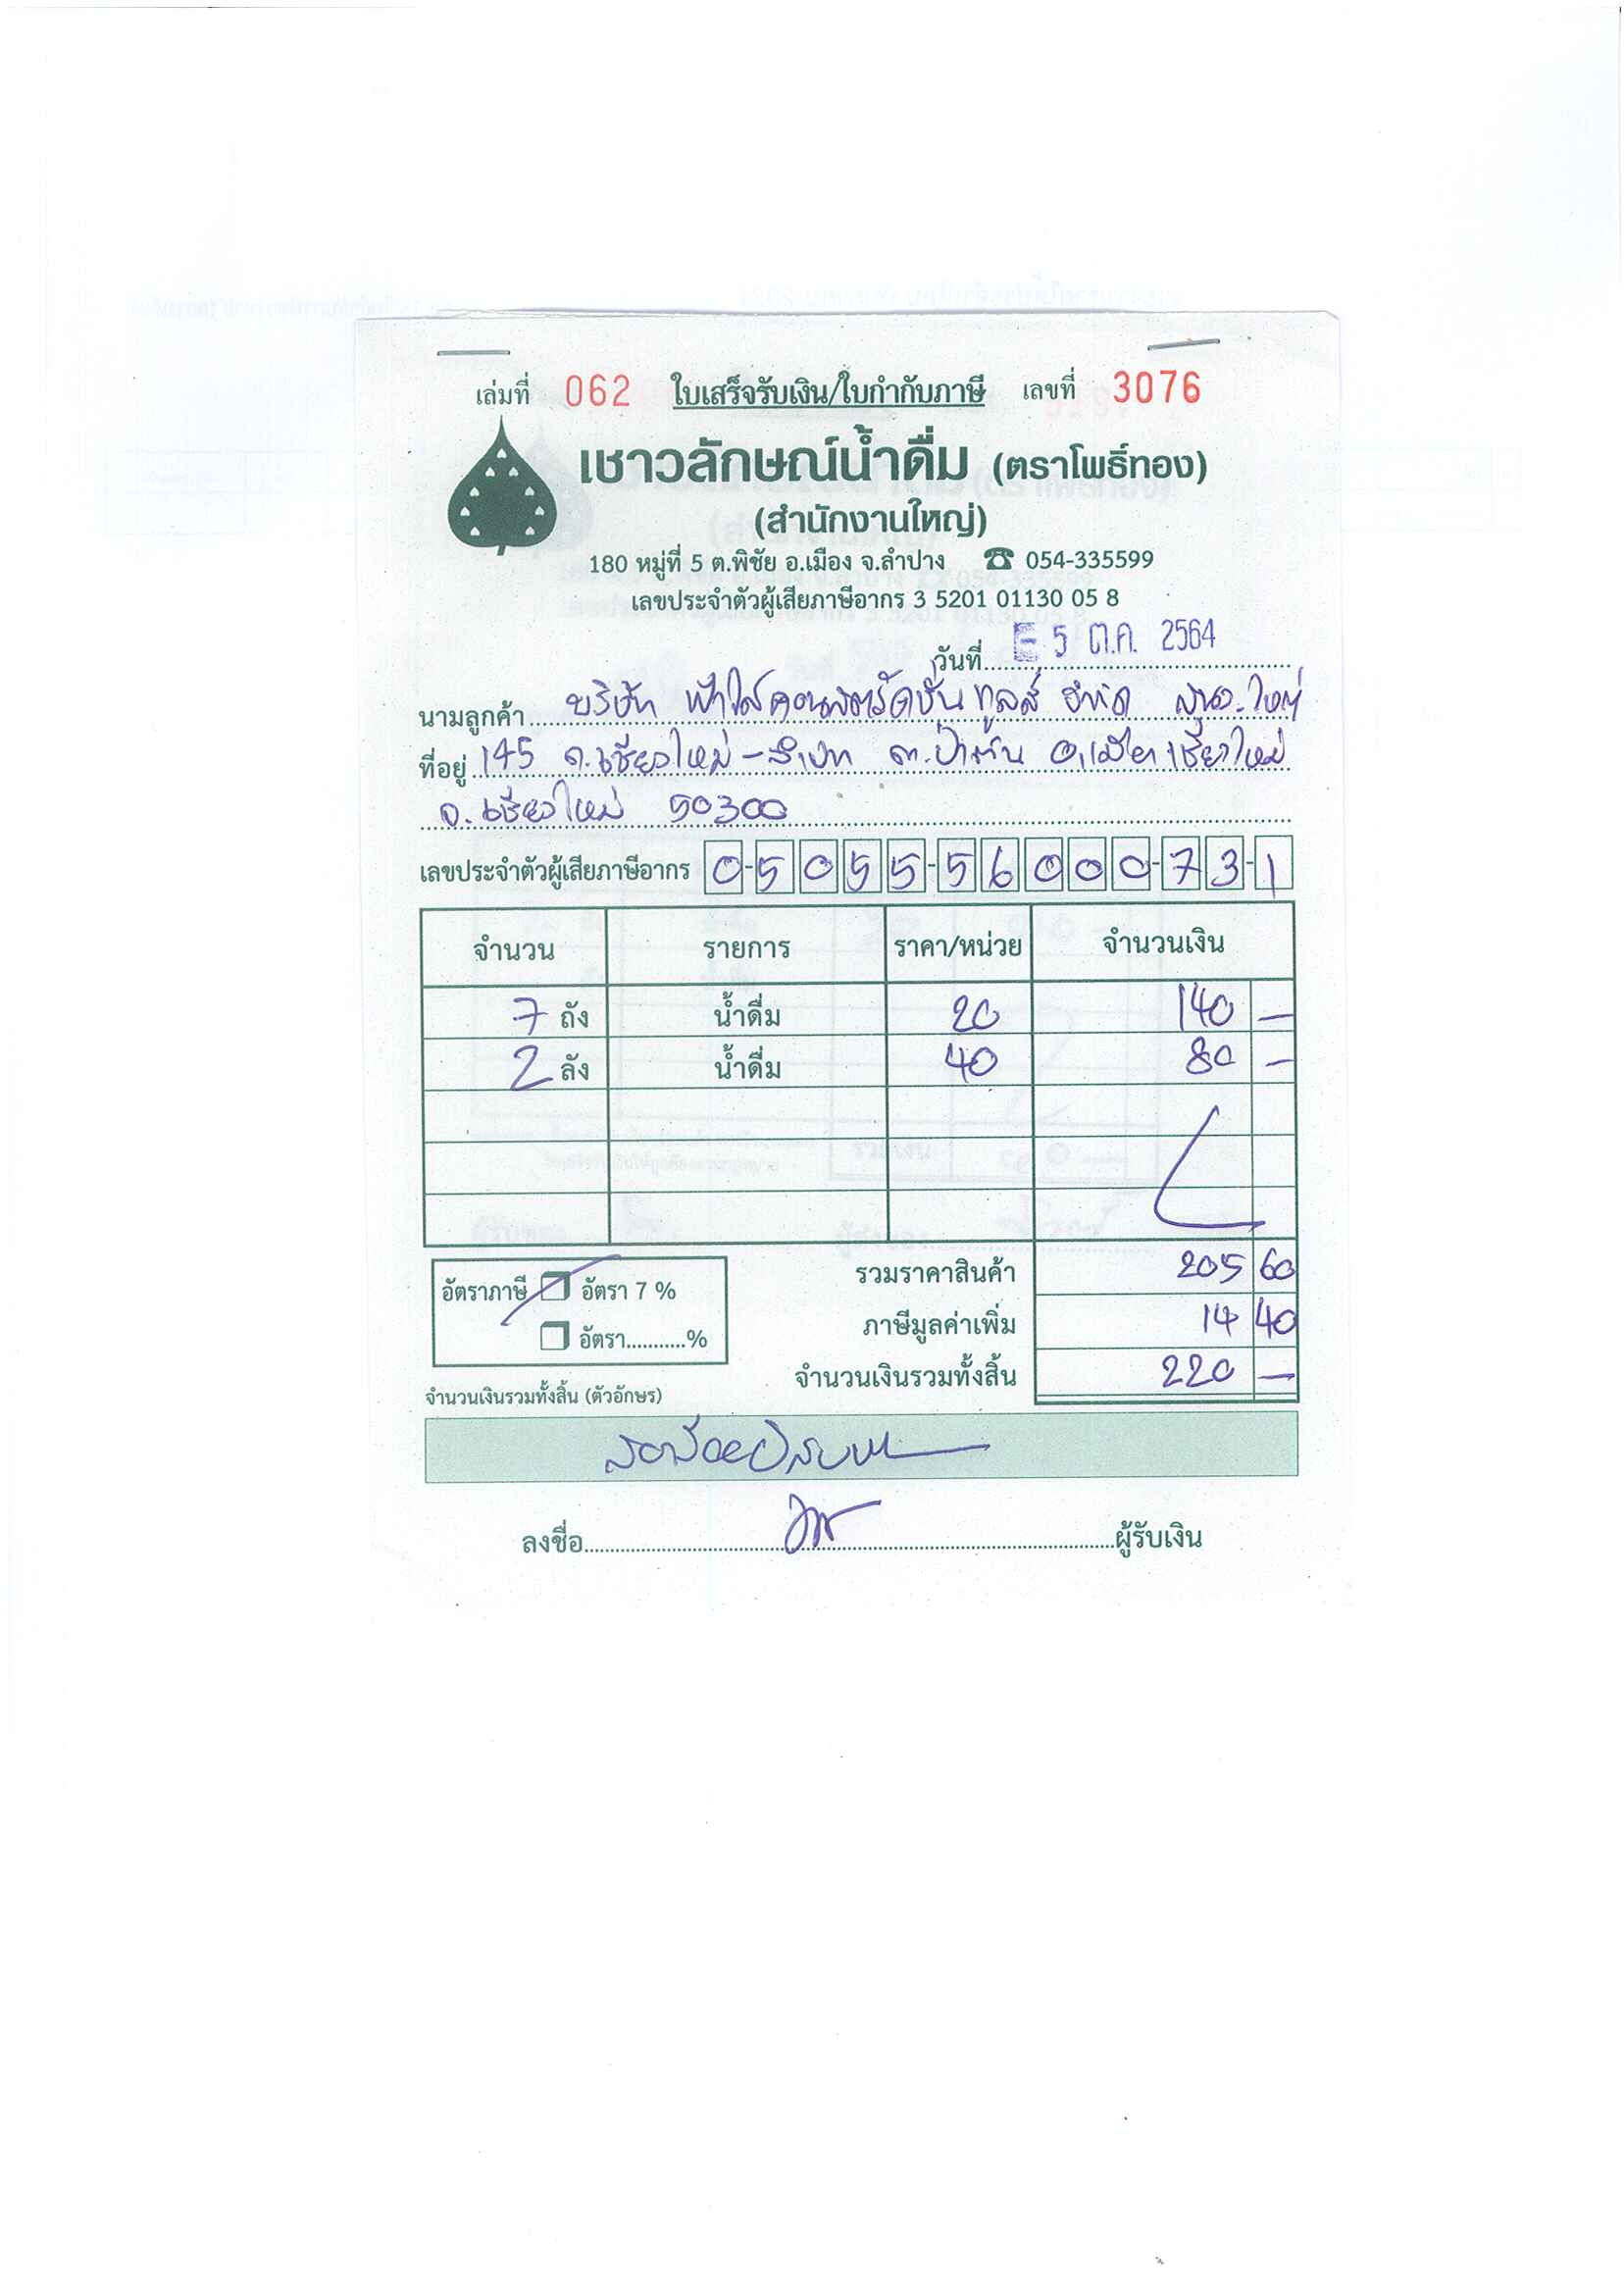 เล่มที่ 062 ใบเสร็จรับเงิน/ใบกำกับภาษี เลขที่ 3076
เชาวลักษณ์น้ำดื่ม (ตราโพธิ์ทอง)
(สำนักงานใหญ่)
180 หมู่ที่ 5 ต.พิชัย อ.เมือง จ.ลำปาง ☎ 054-335599
เลขประจำตัวผู้เสียภาษีอากร 3 5201 01130 05 8
วันที่ 5 ต.ค. 2564
นามลูกค้า บริษัท ฟ้าใสคอนสตรัคชั่น ทูลส์ จำกัด สนง.ใหญ่
ที่อยู่ 145 ถ.เชียงใหม่-ลำปาง ต.ป่าตัน อ.เมืองเชียงใหม่
จ.เชียงใหม่ 50300
เลขประจำตัวผู้เสียภาษีอากร 0-5055-56000-73-1
จำนวน รายการ ราคา/หน่วย จำนวนเงิน
7 ถัง น้ำดื่ม 20 140 —
2 ลัง น้ำดื่ม 40 80 —
รวมราคาสินค้า 205 60
อัตราภาษี อัตรา 7 %
ภาษีมูลค่าเพิ่ม 14 40
อัตรา...........%
จำนวนเงินรวมทั้งสิ้น 220 —
จำนวนเงินรวมทั้งสิ้น (ตัวอักษร)
สองร้อยยี่สิบบาท
ลงชื่อ ผู้รับเงิน